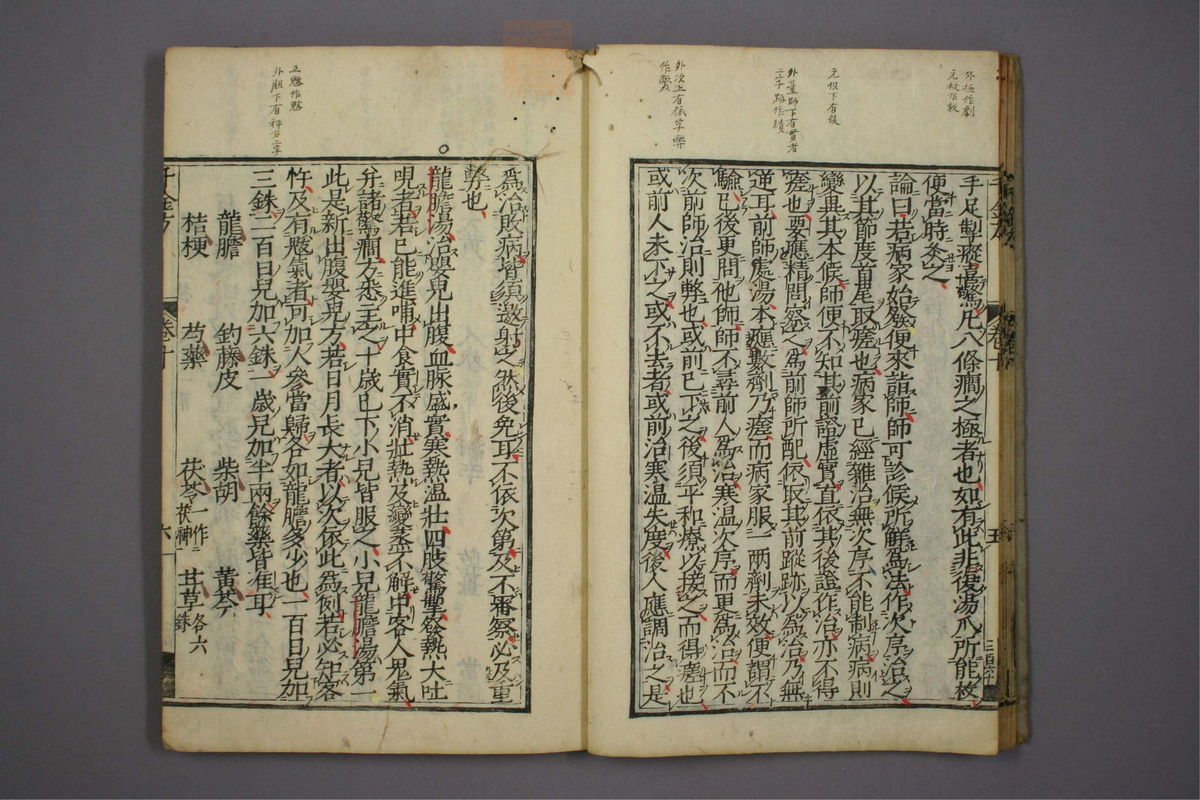 手足掣瘲最爲凡八條癎之極者也如有此非復湯爪所能救
便當時灸之
論曰若病家始發便來詣師師可診候所解爲法作次序治之
以其節度首尾取瘥也病家已經雜治無次序不能制病病則
變異其本候師便不知其前證虛實直依其後證作治亦不得
瘥也要應精問察之爲前師所配依取其前蹤跡以爲治乃無
逆耳前師處湯本應數劑乃瘥而病家服一兩劑未效便謂不
驗已後更問他師師不尋前人爲治寒溫次序而更爲治而不
次前師治則弊也或前已下之後須平和療以接之而得瘥也
或前人未下之或不去者或前治寒温失度後人應調治之是
爲治敗病皆須邀射之然後免耳不依次第及不審察必及重
弊也
龍膽湯治嬰兒出腹血脉盛實寒熱温壯四肢驚掣發熱大吐
哯者若已能進哺中食實不消壯熱及變蒸不解中客人鬼氣
并諸驚癎方悉主之十歲已下小兒皆服之小兒龍膽湯第一
此是新出腹嬰兒方若日月長大者以次依此爲例若必知客
忤及有魃氣者可加人參當歸各如龍膽多少也一百日兒加
三銖二百日兒加六銖一歲兒加半兩餘藥皆准耳
龍膽 釣藤皮 柴胡 黃芩
桔梗 芍藥 茯苓一作茯神 甘草各六銖
千金方 卷十 六
外極作劇
元校作救
元似下有後
外臺師下有貫者
二字 跡作蹟
外次上有依字 弊
正驗作魃
外胆下有秤分二字